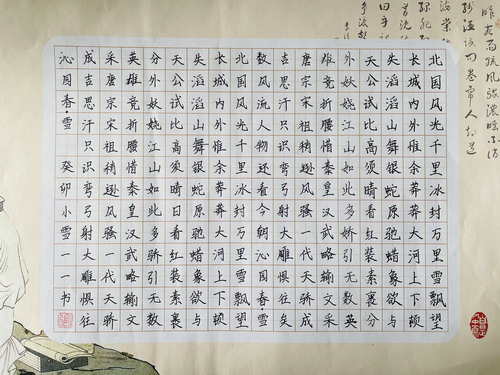 北国风光千里冰封万里雪飘望
长城内外惟余莽莽大河上下顿
失滔滔山舞银蛇原驰蜡象欲与
天公试比高须晴看红装素裹分
外妖娆江山如此多娇引无数英
雄竞折腰惜秦皇汉武略输文采
唐宗宋祖稍逊风骚一代天骄成
吉思汗只识弯弓射大雕惧往矣
数风流人物还看今朝沁园春·雪
北国风光千里冰封万里雪飘望
长城内外惟余莽莽大河上下顿
失滔滔山舞银蛇原驰蜡象欲与
天公试比高须晴日看红装素裹
分外妖娆江山如此多骄引无数
英雄竞折腰惜秦皇汉武略输文
采唐宗宋祖稍逊风骚一代天骄
成吉思汗只识弯弓射大雕惧往
沁园春·雪 癸卯小雪一一书